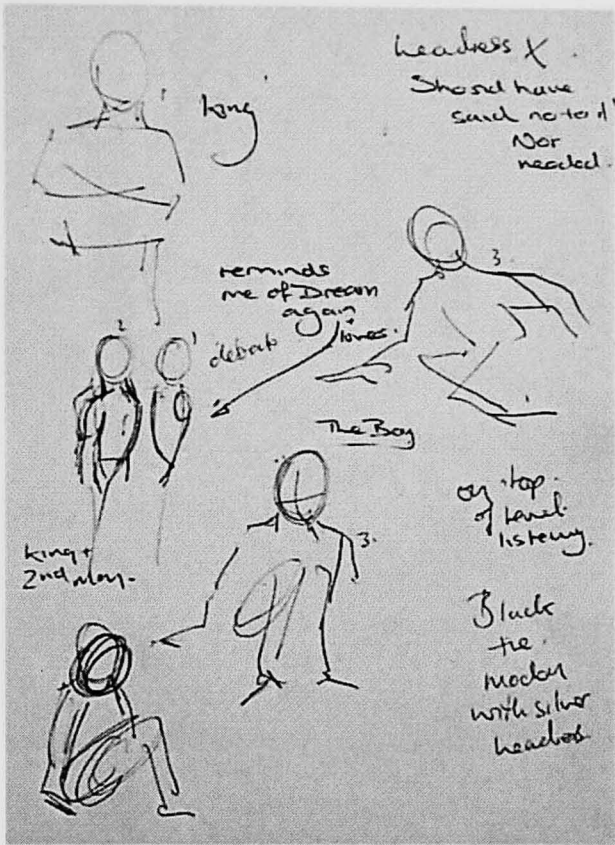 headress X
Shoud have
said no to it
Not
needed.
'king'
3.
reminds
me of Dream
again
lines.
2
1
debate
The Boy
king +
2nd Man.
3.
on top
of
listening.
Black
tie
modern
with silver
headress